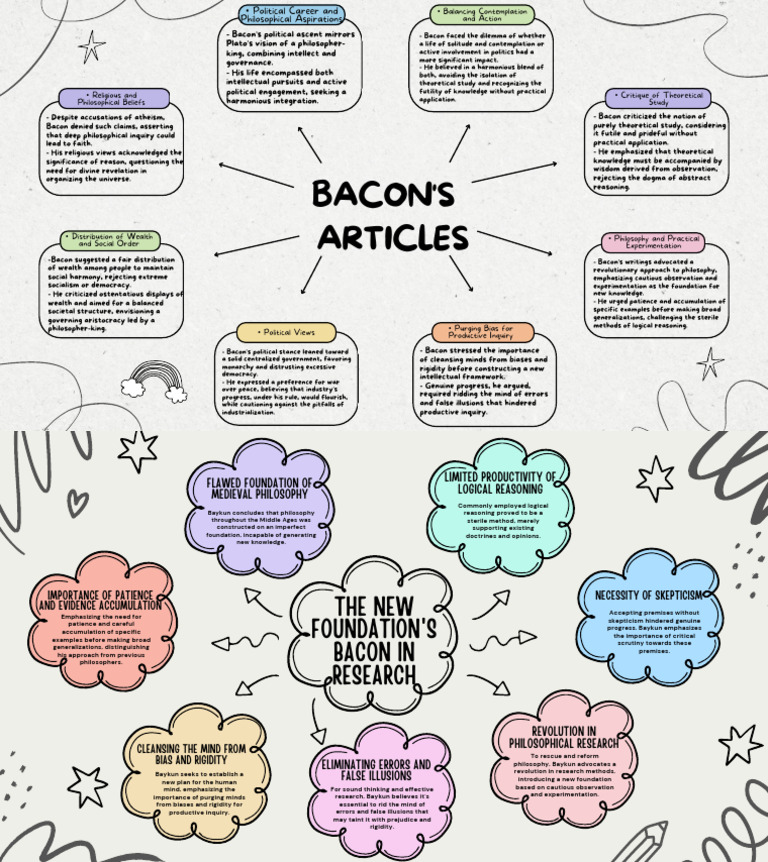 • Political Career and
Philosophical Aspirations
- Bacon's political ascent mirrors
Plato's vision of a philosopher-
king, combining intellect and
governance.
- His life encompassed both
intellectual pursuits and active
political engagement, seeking a
harmonious integration.
• Balancing Contemplation
and Action
- Bacon faced the dilemma of whether
a life of solitude and contemplation or
active involvement in politics had a
more significant impact.
- He believed in a harmonious blend of
both, avoiding the isolation of
theoretical study and recognizing the
futility of knowledge without practical
application.
• Religious and
Philosophical Beliefs
- Despite accusations of atheism,
Bacon denied such claims, asserting
that deep philosophical inquiry could
lead to faith.
- His religious views acknowledged the
significance of reason, questioning the
need for divine revelation in
organizing the universe.
• Critique of Theoretical
Study
- Bacon criticized the notion of
purely theoretical study, considering
it futile and prideful without
practical application.
- He emphasized that theoretical
knowledge must be accompanied by
wisdom derived from observation,
rejecting the dogma of abstract
reasoning.
BACON'S
ARTICLES
• Distribution of Wealth
and Social Order
-Bacon suggested a fair distribution
of wealth among people to maintain
social harmony, rejecting extreme
socialism or democracy.
- He criticized ostentatious displays of
wealth and aimed for a balanced
societal structure, envisioning a
governing aristocracy led by a
philosopher-king.
• Philosophy and Practical
Experimentation
- Bacon's writings advocated a
revolutionary approach to philosophy,
emphasizing cautious observation and
experimentation as the foundation for
new knowledge.
- He urged patience and accumulation of
specific examples before making broad
generalizations, challenging the sterile
methods of logical reasoning.
• Political Views
- Bacon's political stance leaned toward
a solid centralized government, favoring
monarchy and distrusting excessive
democracy.
- He expressed a preference for war
over peace, believing that industry's
progress, under his rule, would flourish,
while cautioning against the pitfalls of
industrialization.
• Purging Bias for
Productive Inquiry
- Bacon stressed the importance
of cleansing minds from biases and
rigidity before constructing a new
intellectual framework.
- Genuine progress, he argued,
required ridding the mind of errors
and false illusions that hindered
productive inquiry.
FLAWED FOUNDATION OF
MEDIEVAL PHILOSOPHY
Baykun concludes that philosophy
throughout the Middle Ages was
constructed on an imperfect
foundation, incapable of generating
new knowledge.
LIMITED PRODUCTIVITY OF
LOGICAL REASONING
Commonly employed logical
reasoning proved to be a
sterile method, merely
supporting existing
doctrines and opinions.
IMPORTANCE OF PATIENCE
AND EVIDENCE ACCUMULATION
Emphasizing the need for
patience and careful
accumulation of specific
examples before making broad
generalizations, distinguishing
his approach from previous
philosophers.
THE NEW
FOUNDATION'S
BACON IN
RESEARCH
NECESSITY OF SKEPTICISM
Accepting premises without
skepticism hindered genuine
progress. Baykun emphasizes
the importance of critical
scrutiny towards these
premises.
CLEANSING THE MIND FROM
BIAS AND RIGIDITY
Baykun seeks to establish a
new plan for the human
mind, emphasizing the
importance of purging minds
from biases and rigidity for
productive inquiry.
ELIMINATING ERRORS AND
FALSE ILLUSIONS
For sound thinking and effective
research, Baykun believes it's
essential to rid the mind of
errors and false illusions that
may taint it with prejudice and
rigidity.
REVOLUTION IN
PHILOSOPHICAL RESEARCH
To rescue and reform
philosophy, Baykun advocates a
revolution in research methods,
introducing a new foundation
based on cautious observation
and experimentation.